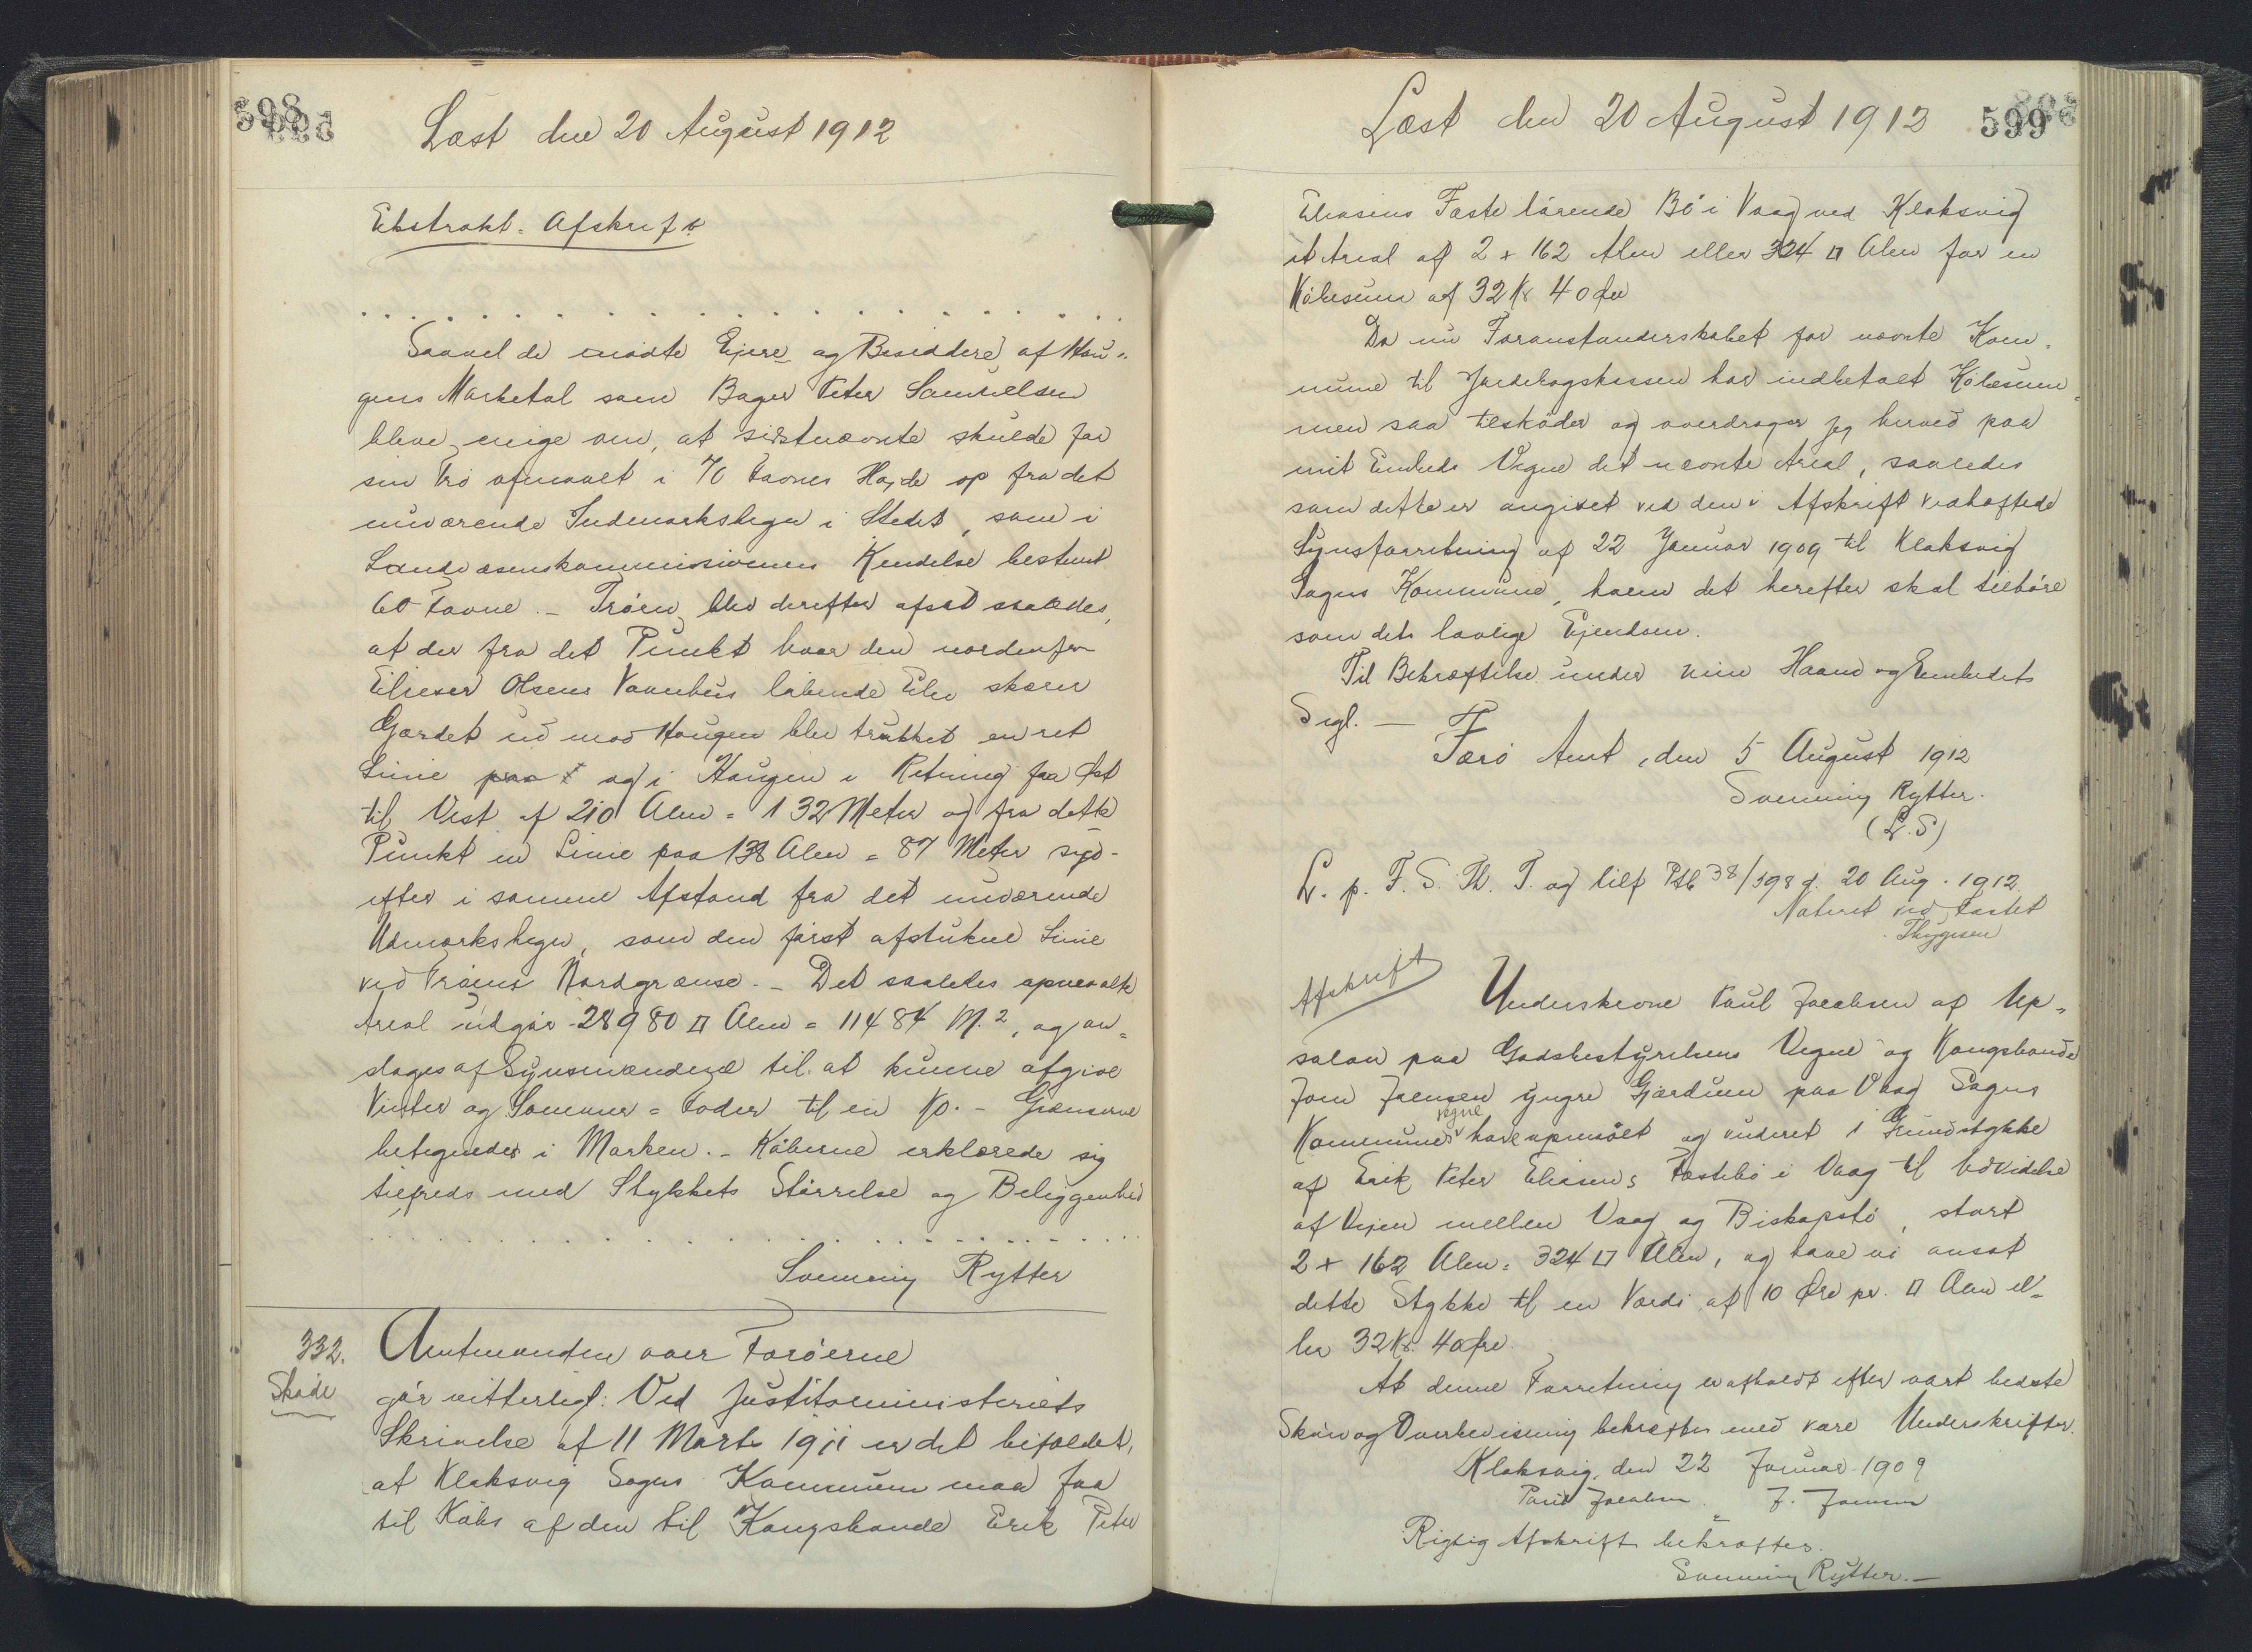 598
Læst den 20 August 1912
Ekstrakt-Afskrift
Saavel de mødte Ejere og Besiddere af Hau-
gens Marketal som Bager Peter Samuelsen
bleve enige om, at sidstnævnte skulde faa
sin Trø afmaalt i 70 Favnes Højde op fra det
nuværende Indmarkshegn i Stedet, som i
Landvæsenskommissionens Kendelse bestemt
60 Favne. – Trøen blev derefter afsat saaledes,
at der fra det Punkt hvor den nordenfor
Elieser Olsens Vaanhus løbende Elv skærer
Gærdet ud mod Haugen blev trukket en ret
Linie paa og i Haugen i Retning fra Øst
til Vest af 210 Alen = 132 Meter og fra dette
Punkt en Linie paa 138 Alen = 87 Meter syd-
efter i samme Afstand fra det nuværende
Udmarkshegn, som den først afstukne Linie
ved Trøens Nordgrænse. – Det saaledes opmaalte
Areal udgør 28980 □ Alen = 11484 M.2, og an-
slages af Synsmændene til at kunne afgive
Vinter og Sommer = Foder til en Ko. – Grænserne
betegnedes i Marken. – Køberne erklærede sig
tilfreds med Stykkets Størrelse og Beliggenhed
Svenning Rytter
332. Amtmanden over Færøerne
Skøde gør vitterligt: Ved Justitsministeriets
Skrivelse af 11 Marts 1911 er det bifaldet,
at Klaksvig Sogns Kommune maa faa
til Købs af den til Kongsbonde Erik Peter
599
Læst den 20 August 1912
Eliasens Fæste hørende Bø i Vaag ved Klaksvig
et Areal af 2 + 162 Alen eller 324 □ Alen for en
Købesum af 32 Kr 40 Øre
Da nu Foranstanderskabet for nævnte Kom-
mune til Jordebogskassen har indbetalt Købesum-
men saa tilskøder og overdrager jeg herved paa
mit Embeds Vegne det nævnte Areal, saaledes
som dette er angivet ved den i Afskrift vedhæftede
Synsforretning af 22 Januar 1909 til Klaksvig
Sogns Kommune, hvem det herefter skal tilhøre
som dets lovlige Ejendom.
Til Bekræftelse under min Haand og Embedets
Segl. –
Færø Amt, den 5 August 1912
Svenning Rytter.
(L.S)
L. p. F. S. Th. T. og tilf Ptb 38/198 d. 20 Aug. 1912.
Noteret ved Fæstet
Thygesen
Afskrift
Underskrevne Paul Jacobsen af Up-
salon paa Godsbestyrelsens Vegne og Kongsbonde
Joen Joensen yngre Gjærdum paa Vaag Sogns
Kommunes vegne have opmaalt og vurderet 1 Grundstykke
af Erik Peter Eliasens Fæstebø i Vaag til Udvidelse
af Vejen mellem Vaag og Biskopstø, stort
2 + 162 Alen = 324 □ Alen, og have vi ansat
dette Stykke til en Værdi af 10 Øre pr. □ Alen el-
ler 32 Kr. 40 Øre.
At denne Forretning er afholdt efter vort bedste
Skøn og Overbevisning bekræftes med vore Underskrifter.
Klaksvig, den 22 Januar 1909
Paul Jacobsen. J. Joensen
Rigtig Afskrift bekræftes.
Svenning Rytter. –